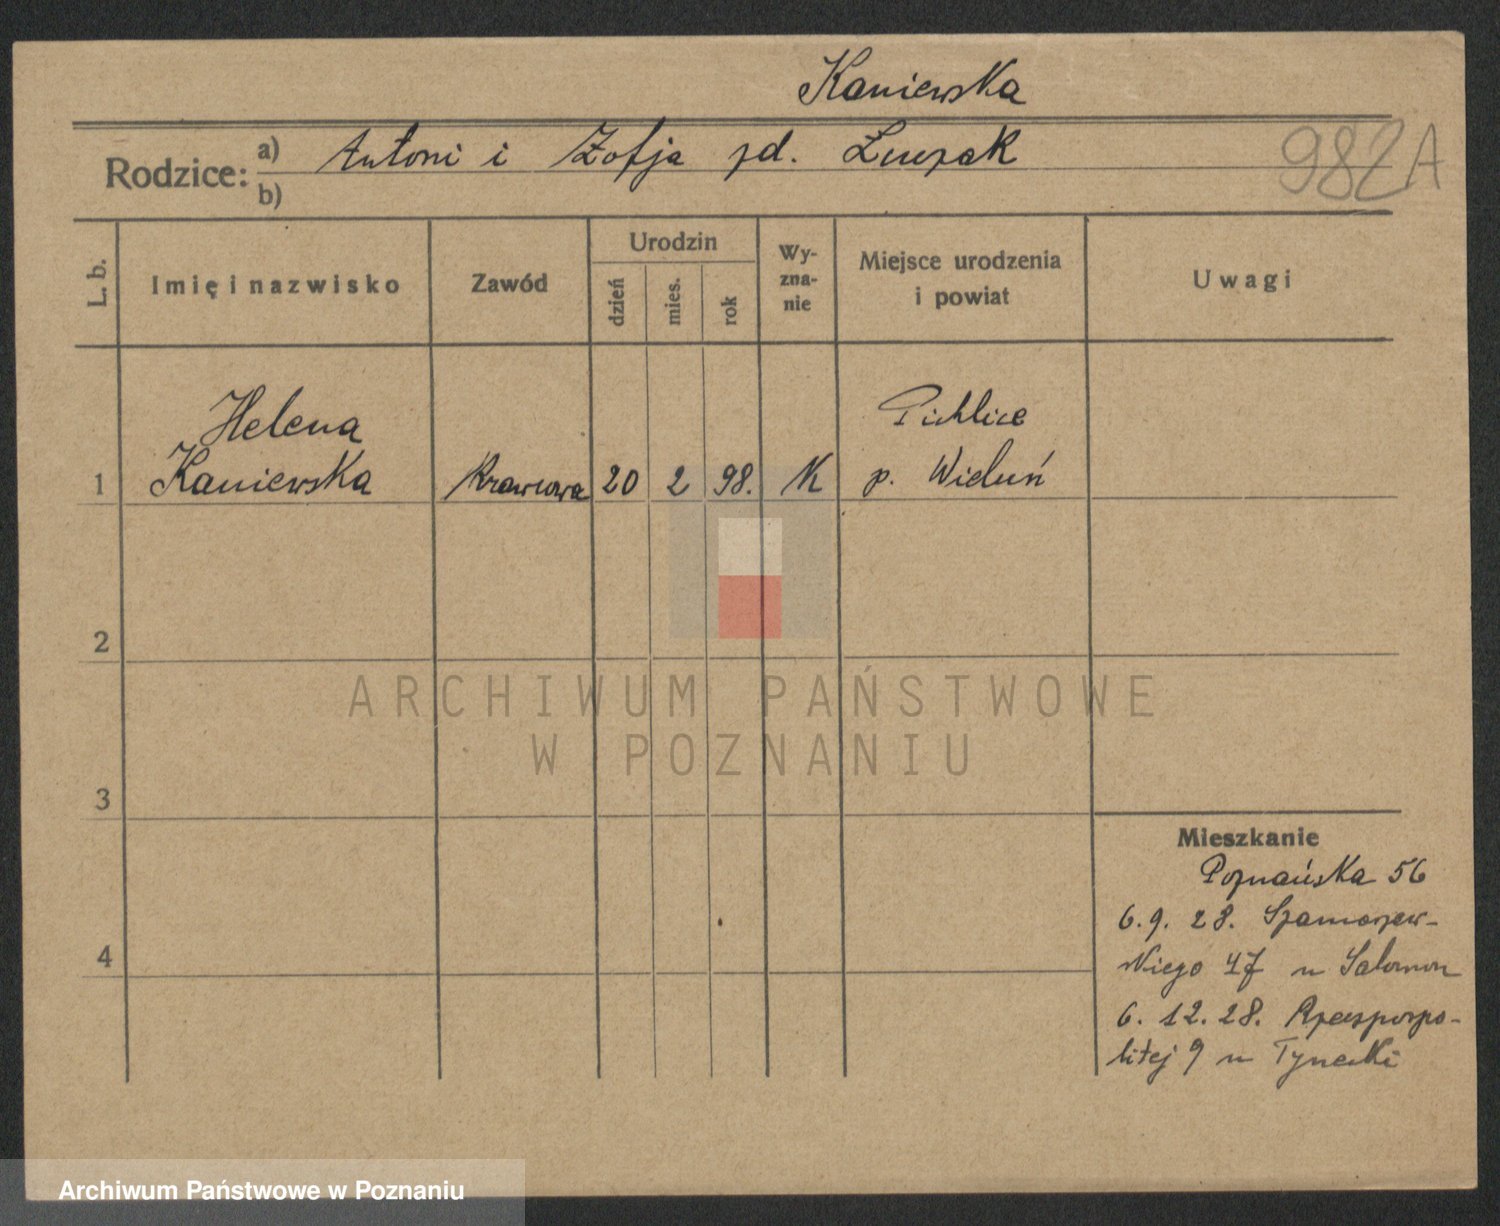 Kaniewska
982A
Rodzice: a) Antoni i Zofja zd.
b)
L. b.
Imię i nazwisko
Zawód
Urodzin
dzień
mies.
rok
Wy-
zna-
nie
Miejsce urodzenia
i powiat
Uwagi
Helena
Kaniewska
Pichlice
1 Krawcowa 20 2 98. K p. Wieluń
2
ARCHIWUM PAŃSTWOWE
W POZNANIU
3
Mieszkanie
Poznańska 56
6.9. 28. Szamarzew-
4
skiego 47 u Salomon
6. 12. 28. Rzeczpospo-
litej 9 u
Archiwum Państwowe w Poznaniu